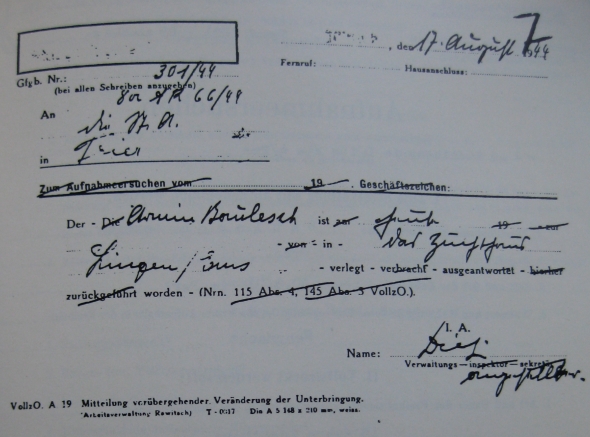 7
, den 17. August 1944
Fernruf: Hausanschluss:
Gfgb. Nr.: 301/44
(bei allen Schreiben anzugeben)
An
die St. A.
in Trier
Zum Aufnahmeersuchen vom 19 . Geschäftszeichen:
Der - Die Armin ist zur heute 19 - zur
- von - in - das Zuchthaus
Lingen/Ems - verlegt - verbracht - ausgeantwortet - hierher
zurückgeführt worden - (Nrn. 115 Abs. 4, 145 Abs. 3 VollzO.).
I. A.
Name:
Verwaltungs-inspektor-sekretär
angestellter.
VollzO. A 19 Mitteilung vorübergehender Veränderung der Unterbringung.
(Arbeitsverwaltung Rawitsch) T - 0037 Din A 5 148 x 210 mm, weiss.